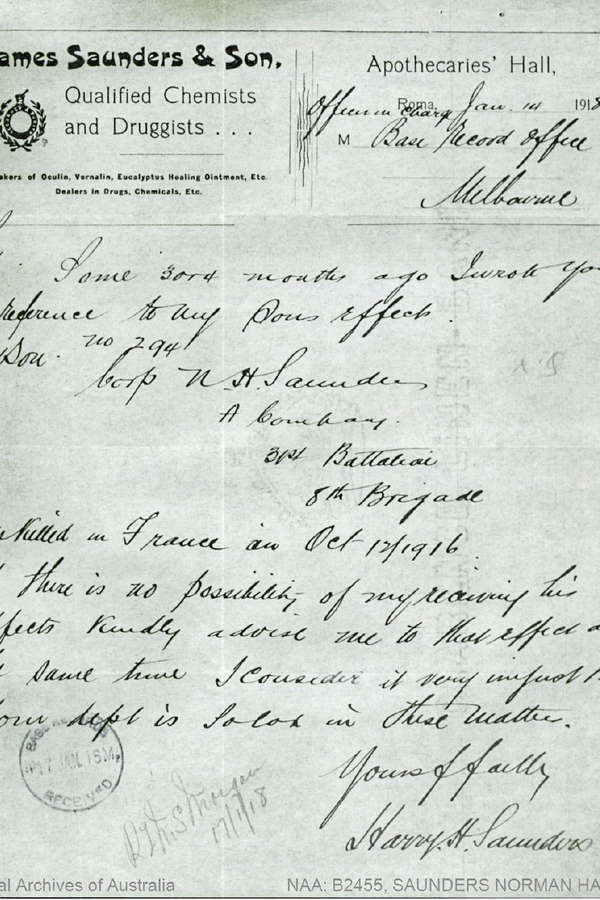 ames Saunders & Son,
Qualified Chemists
and Druggists . . .
akers of Oculin, Vernalin, Eucalyptus Healing Ointment, Etc.
Dealers in Drugs, Chemicals, Etc.
Apothecaries' Hall,
Roma, Jan. 14 1918
Officer in Charge
M Base Record Office
Melbourne
Some 3 or 4 months ago I wrote you
reference to my Sons effects.
Son. No 294
Corp N. H. Saunders
A Company.
31st Battalion
8th Brigade
Killed in France on Oct 12/1916.
there is no possibility of my receiving his
ffects Kindly advise me to that effect a
same time I consider it very unjust
our dept is so lax in these matters.
Yours ffaitly
Harry. H. Saunders
BASE RECORDS
17 JAN. 18
RECEIVED
Morgan
17/1/18
al Archives of Australia
NAA: B2455, SAUNDERS NORMAN HA